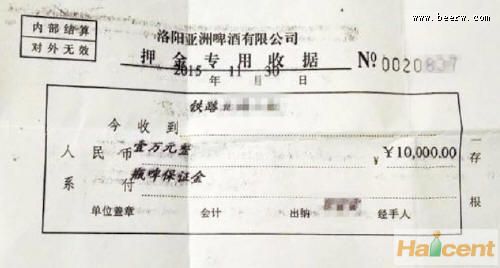 www.beerw.com
内部结算
对外无效
洛阳亚洲啤酒有限公司
押金专用收据
№ 0020837
2015 年 11 月 30 日
铁路
今收到
人民币 壹万元整 ¥ ¥10,000.00
系付 瓶啤保证金
单位盖章 会计 出纳 经手人
一存根
Haicent